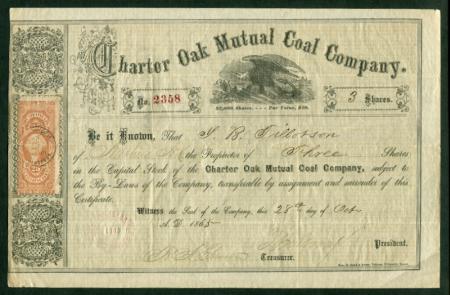 Charter Oak Mutual Coal Company.
No. 2358
3 Shares.
Par Value, $20.
Be it Known, That A. B. Tillotson
of the Proprietor of Three Shares
in the Capital Stock of the Charter Oak Mutual Coal Company, subject to
the By-Laws of the Company, transferable by assignment and surrender of this
Certificate.
Witness the Seal of the Company, this 28th day of Oct
A.D. 1865
President.
Treasurer.